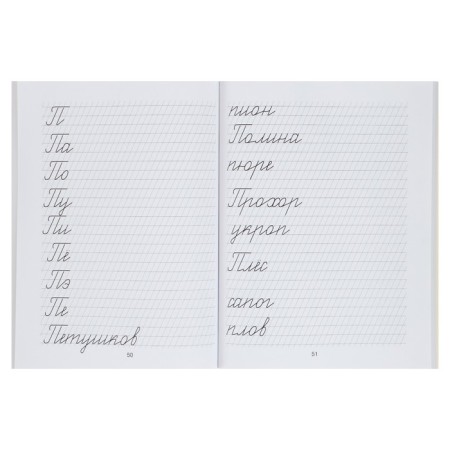 П
Па
По
Пу
Пи
Пё
Пэ
Пе
Петушков
50
пион
Полина
пюре
Прохор
укроп
Плёс
сапог
плов
51